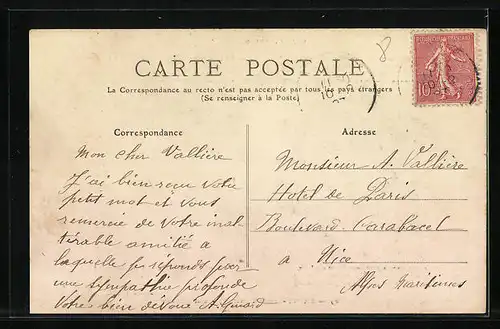 CARTE POSTALE
La Correspondance au recto n'est pas acceptée par tous les pays étrangers
(Se renseigner à la Poste)
Correspondance
Mon cher Vallière
J'ai bien reçu votre
petit mot et vous
remercie de votre inal-
térable amitié a
laquelle je réponds par
une sympathie profonde
Votre bien dévoué
Adresse
Monsieur A. Vallière
Hotel de Paris
Boulevard Carabacel
a Nice
Alpes Maritimes
8
10